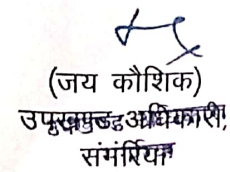 (जय कौशिक)
उपखण्ड अधिकारी,
संगरिया